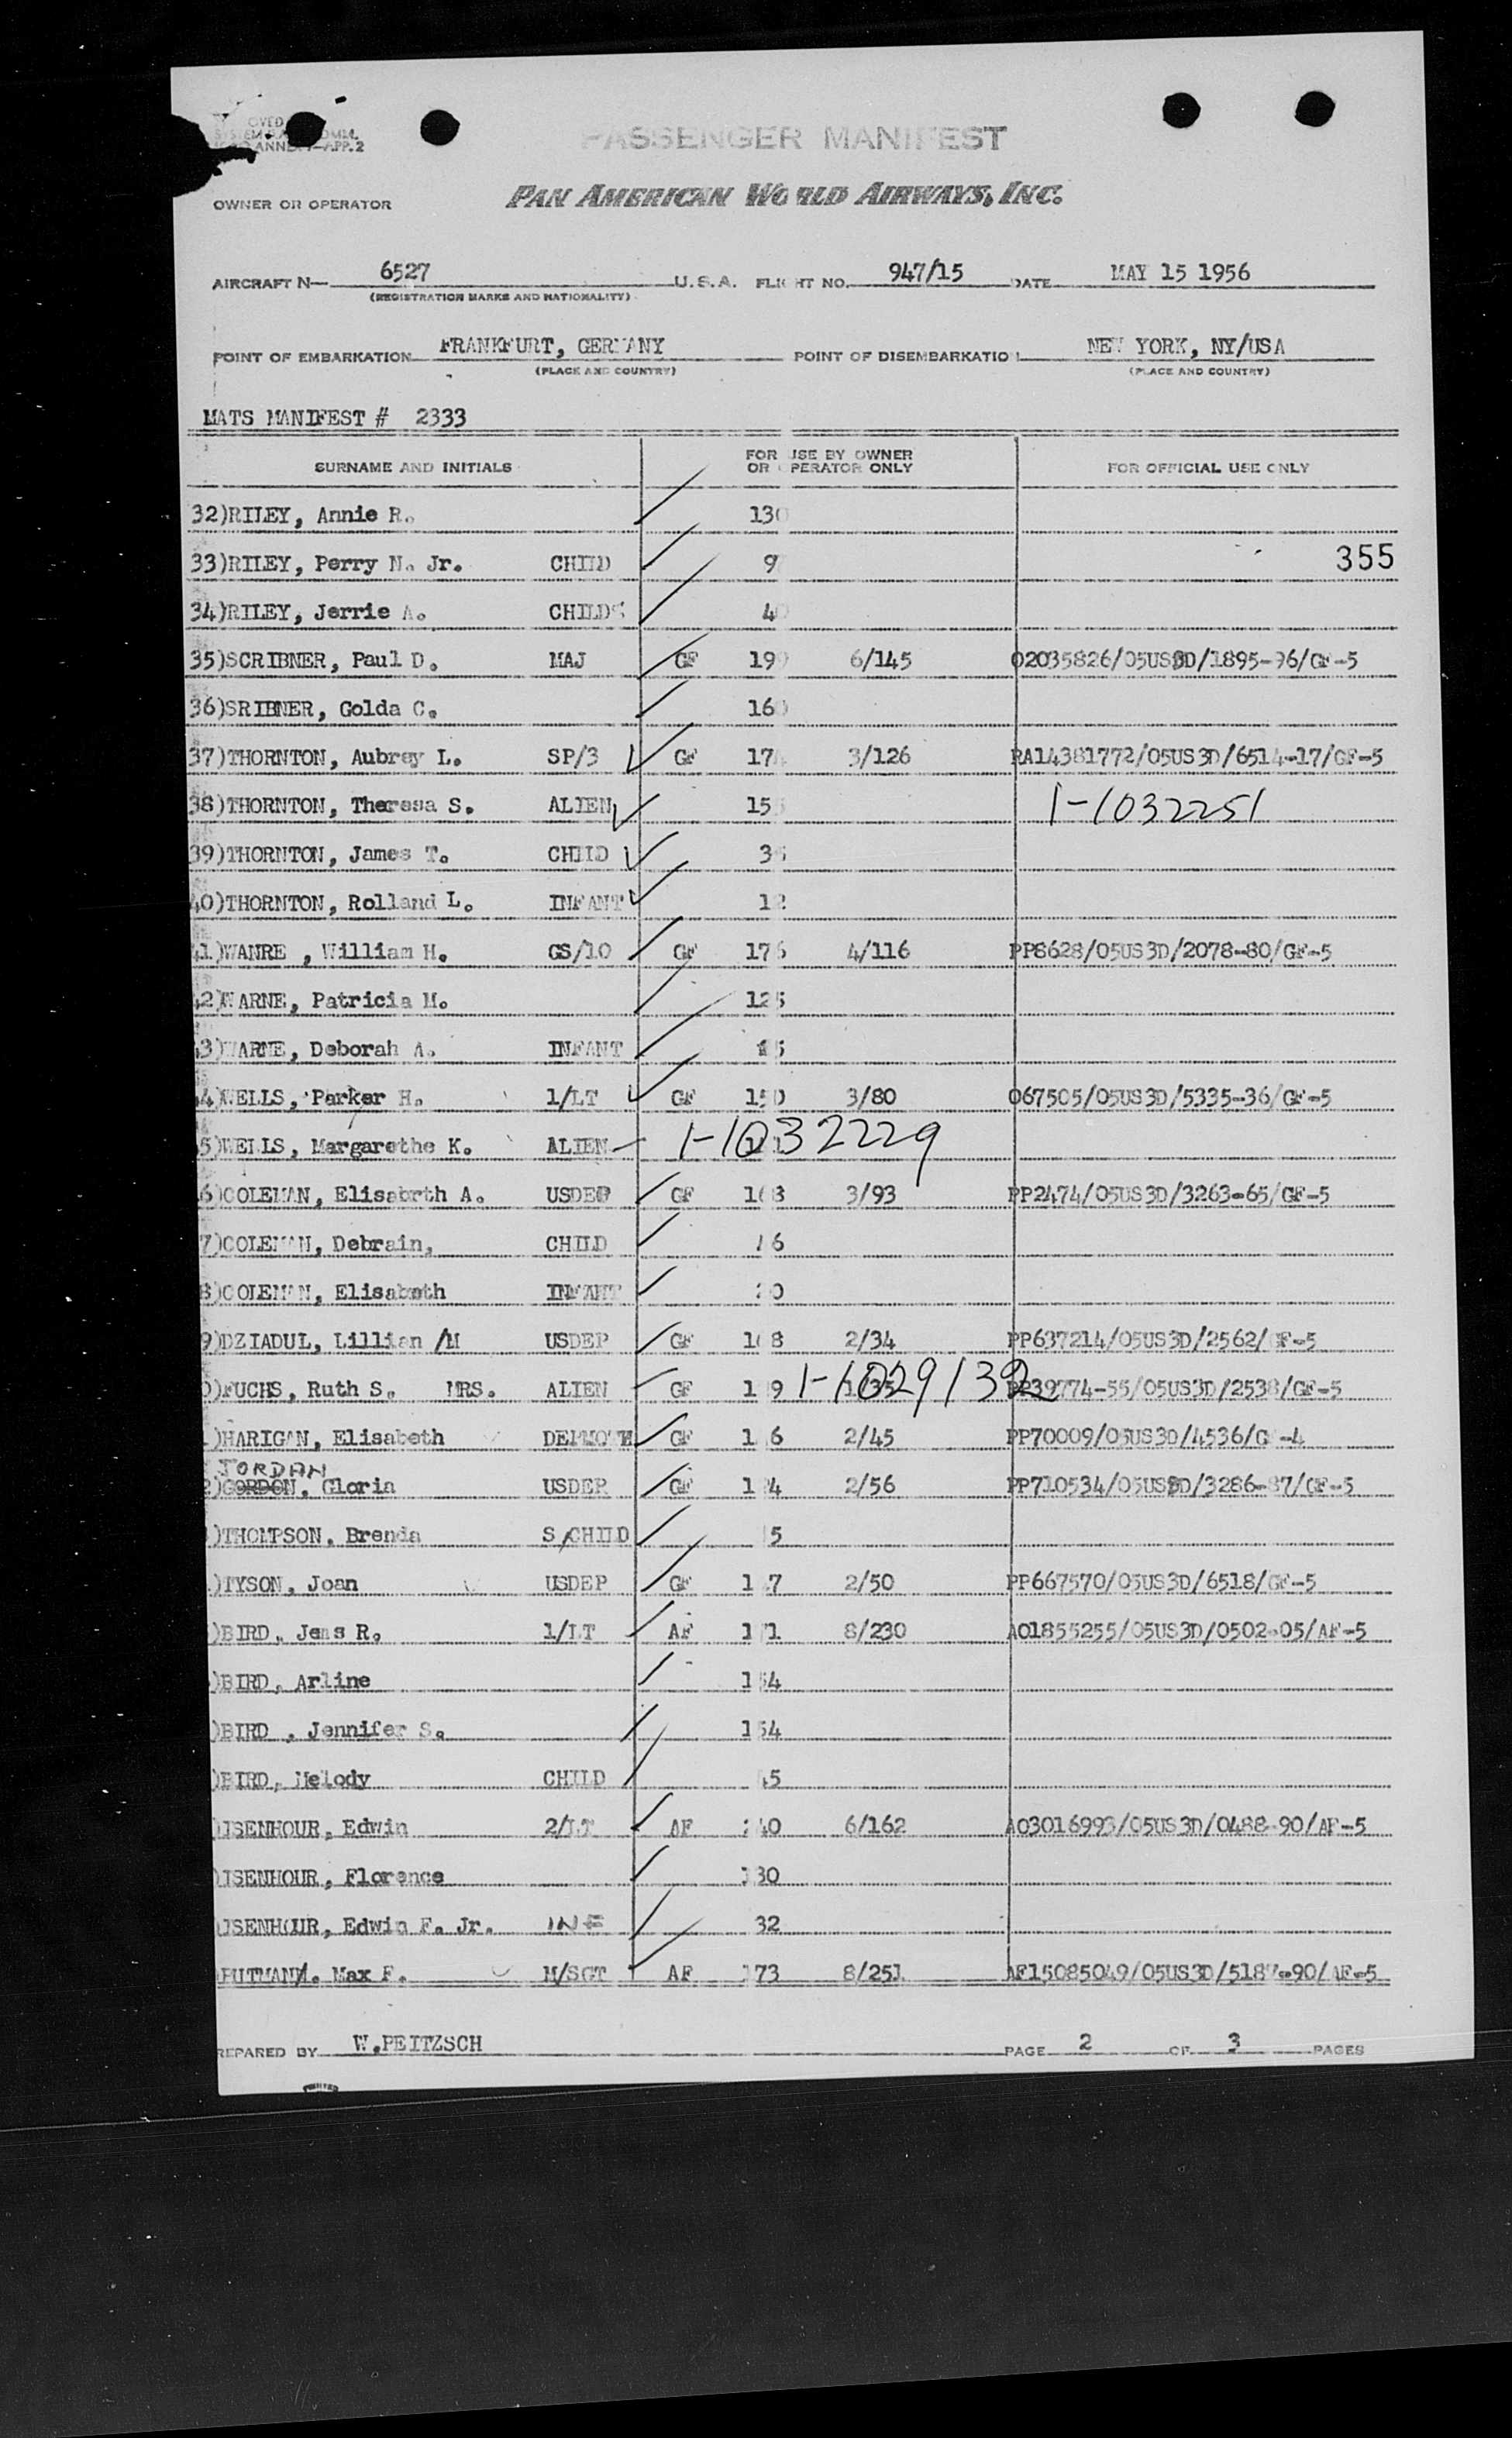 OVED
SYSTEM OMM.
ANNE -APP.2
PASSENGER MANIFEST
OWNER OR OPERATOR
PAN AMERICAN WORLD AIRWAYS, INC.
AIRCRAFT N— 6527 U.S.A. FLIGHT NO. 947/15 DATE MAY 15 1956
(REGISTRATION MARKS AND NATIONALITY)
POINT OF EMBARKATION FRANKFURT, GERMANY POINT OF DISEMBARKATION NEW YORK, NY/USA
(PLACE AND COUNTRY) (PLACE AND COUNTRY)
MATS MANIFEST # 2333
SURNAME AND INITIALS FOR USE BY OWNER OR OPERATOR ONLY FOR OFFICIAL USE ONLY
32)RILEY, Annie R. 130
33)RILEY, Perry N. Jr. CHILD 9 355
34)RILEY, Jerrie A. CHILD 40
35)SCRIBNER, Paul D. MAJ GF 199 6/145 02035826/05US3D/1895-96/GF-5
36)SRIBNER, Golda C. 160
37)THORNTON, Aubrey L. SP/3 GF 174 3/126 RA14381772/05US3D/6514-17/GF-5
38)THORNTON, Theresa S. ALIEN 155 1-1032251
39)THORNTON, James T. CHILD 35
40)THORNTON, Rolland L. INFANT 12
41)WANRE , William H. GS/10 GF 176 4/116 PP8628/05US3D/2078-80/GF-5
42)WARNE, Patricia M. 125
43)WARNE, Deborah A. INFANT 15
44)WELLS, Parker H. 1/LT GF 150 3/80 067505/05US3D/5335-36/GF-5
5)WELLS, Margarethe K. ALIEN 1-1032229
6)COLEMAN, Elisabrth A. USDEP GF 168 3/93 PP2474/05US3D/3263-65/GF-5
7)COLEMAN, Debrain, CHILD 6
8)COLEMAN, Elisabeth INFANT 0
9)DZIADUL, Lillian /M USDEP GF 1 8 2/34 PP637214/05US3D/2562/GF-5
)FUCHS, Ruth S. MRS. ALIEN GF 1 9 1-1029132 PP39774-55/05US3D/2538/GF-5
)HARIGAN, Elisabeth GF 1 6 2/45 PP70009/05US3D/4536/GF-4
JORDAN
2)GORDON, Gloria USDEP GF 1 4 2/56 PP710534/05US3D/3286-87/GF-5
)THOMPSON, Brenda S/CHILD 5
)TYSON, Joan USDEP GF 1 7 2/50 PP667570/05US3D/6518/GF-5
)BIRD, Jens R. 1/LT AF 171 8/230 AO1855255/05US3D/0502-05/AF-5
)BIRD, Arline 154
)BIRD , Jennifer S. 154
)BIRD, Melody CHILD 45
)ISENHOUR, Edwin 2/LT AF 40 6/162 AO3016993/05US3D/0488-90/AF-5
)ISENHOUR, Florence 130
)ISENHOUR, Edwin F. Jr. INF 32
Max F. M/SGT AF 173 8/251 AF15085049/05US3D/5187-90/AF-5
REPARED BY W.PEITZSCH PAGE 2 OF 3 PAGES